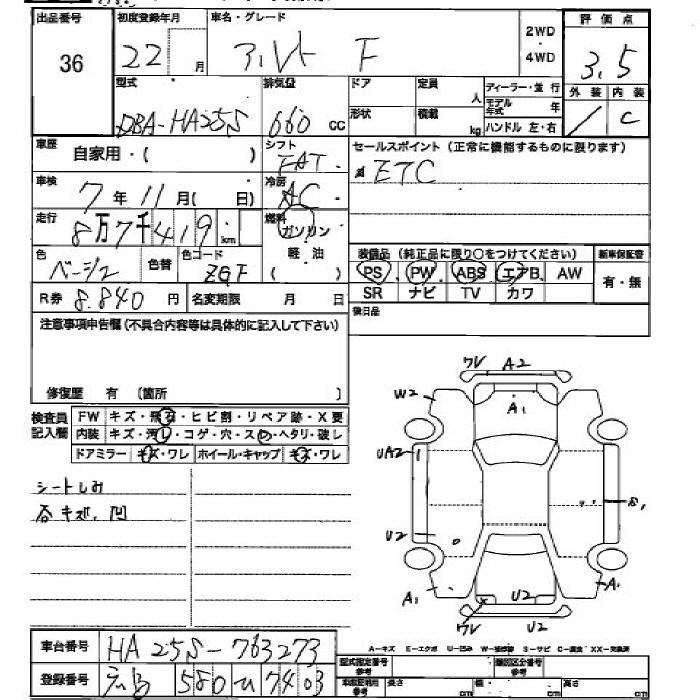 出品番号 初度登録年月 車名・グレード 評価点
36 22 月 アルト F 2WD ・ 4WD 3.5
外装 内装
/ C
型式 排気量 ドア 定員 人 ディーラー・並行
DBA-HA25S 660 CC 形状 積載 kg モデル年式 年
ハンドル 左・右
車歴 自家用・( ) シフト FAT セールスポイント (正常に機能するものに限ります)
車検 7年11月( 日) 冷房 AC ETC
走行 8万7千419 km 燃料 ガソリン
色 ベージュ 色替 色コード ZGF 軽油 ( )
装備品 (純正品に限り○をつけてください) 新車保証書
PS PW ABS エアB AW 有・無
SR ナビ TV カワ
R券 8.840 円 名変期限 月 日 後日品
注意事項申告欄 (不具合内容等は具体的に記入して下さい)
修復歴 有 〔箇所 〕
検査員記入欄
FW キズ・飛石・ヒビ割・リペア跡・X要
内装 キズ・汚レ・コゲ・穴・スレ・ヘタリ・破レ
ドアミラー キズ・ワレ ホイール・キャップ キズ・ワレ
シートしみ
各キズ、凹
ワレ A2
W2 A1
UA2
U2
A1 U2 A1
ワレ U2
車台番号 HA25S-763273
登録番号 広島 580 ひ 7403
A-キズ E-エクボ U-凹み S-サビ
型式指定番号 参考 類別区分番号 参考
長さ cm 幅 cm 高さ cm